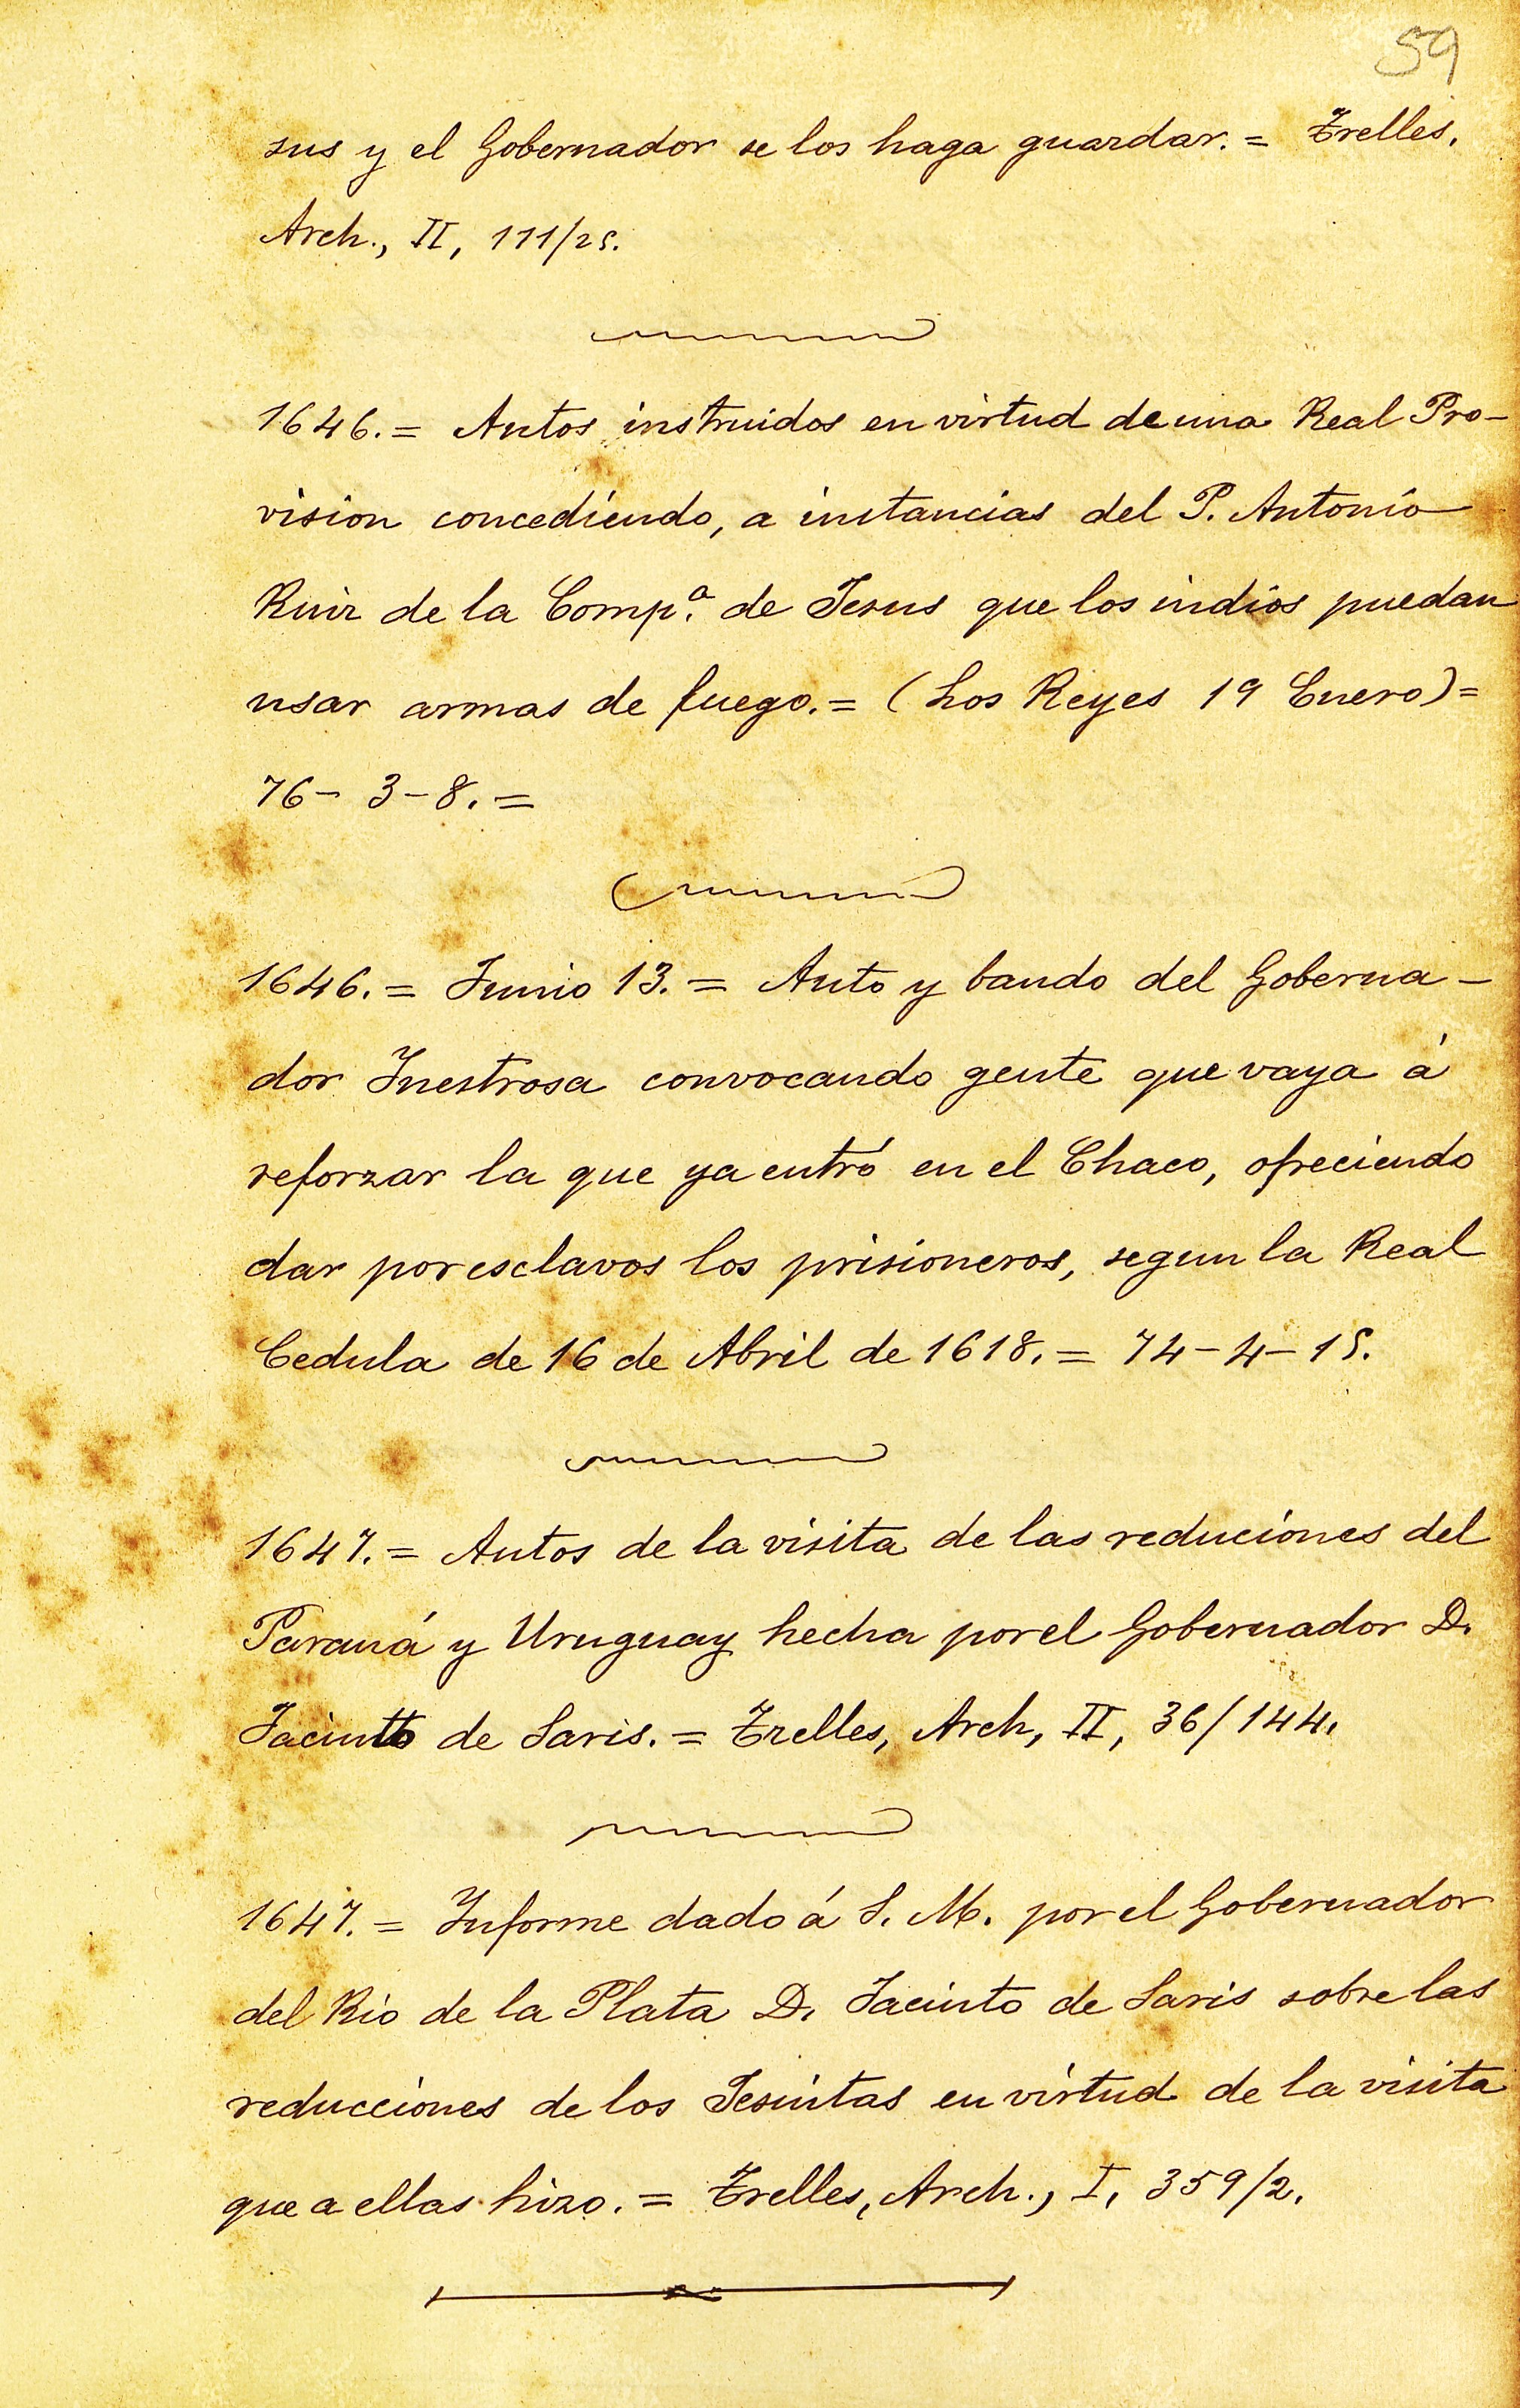 59
sus y el Gobernador se los haga guardar. = Trelles,
Arch., II, 111/25.
1646. = Autos instruidos en virtud de una Real Pro-
vision concediendo, a instancias del P. Antonio
Ruiz de la Comp.ª de Jesus que los indios puedan
usar armas de fuego. = (Los Reyes 19 Enero) =
76 - 3 - 8. =
1646. = Junio 13. = Auto y bando del Goberna-
dor Inestrosa convocando gente que vaya á
reforzar la que ya entró en el Chaco, ofreciendo
dar por esclavos los prisioneros, segun la Real
Cedula de 16 de Abril de 1618. = 74 - 4 - 15.
1647. = Autos de la visita de las reduciones del
Paraná y Uruguay hecha por el Gobernador D.
Jacinto de Laris. = Trelles, Arch, II, 36/144.
1647. = Informe dado á S. M. por el Gobernador
del Rio de la Plata D. Jacinto de Laris sobre las
reducciones de los Jesuitas en virtud de la visita
que a ellas hizo. = Trelles, Arch., I, 359/2.